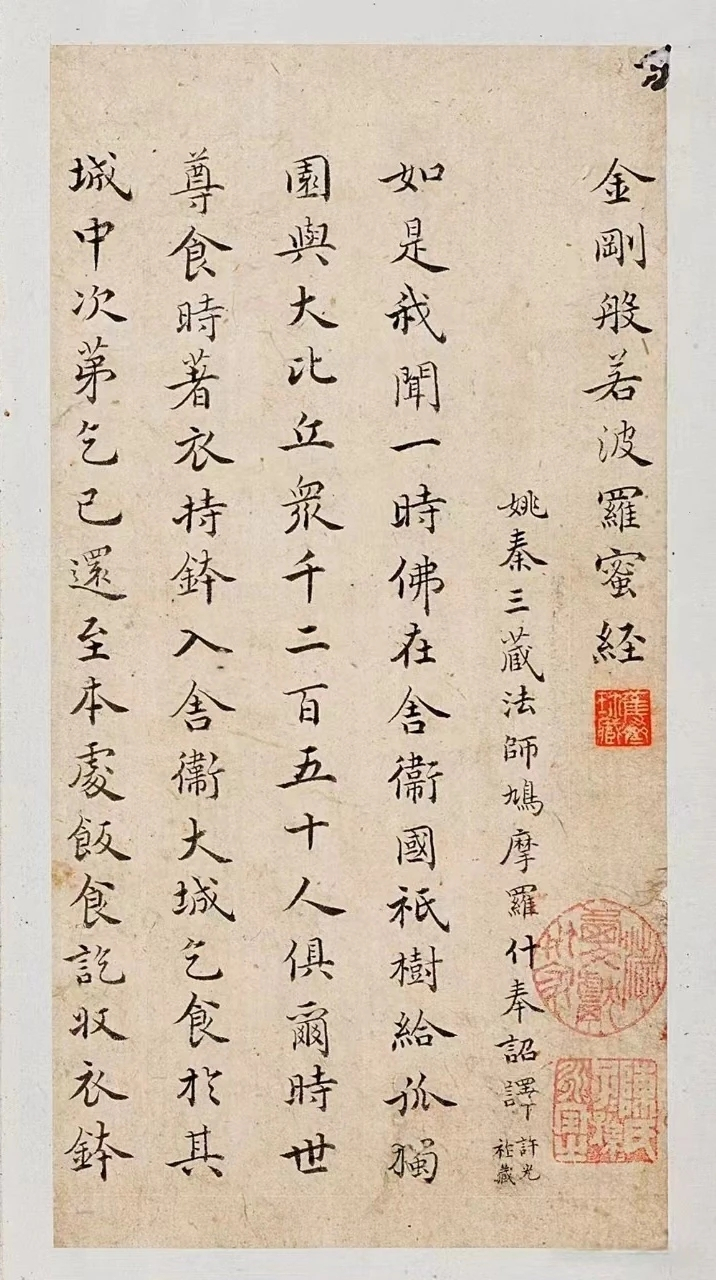 金剛般若波羅蜜經
姚秦三藏法師鳩摩羅什奉詔譯
許光
祚藏
如是我聞一時佛在舍衞國祇樹給孤獨
園與大比丘衆千二百五十人俱爾時世
尊食時著衣持鉢入舍衞大城乞食於其
城中次第乞已還至本處飯食訖收衣鉢